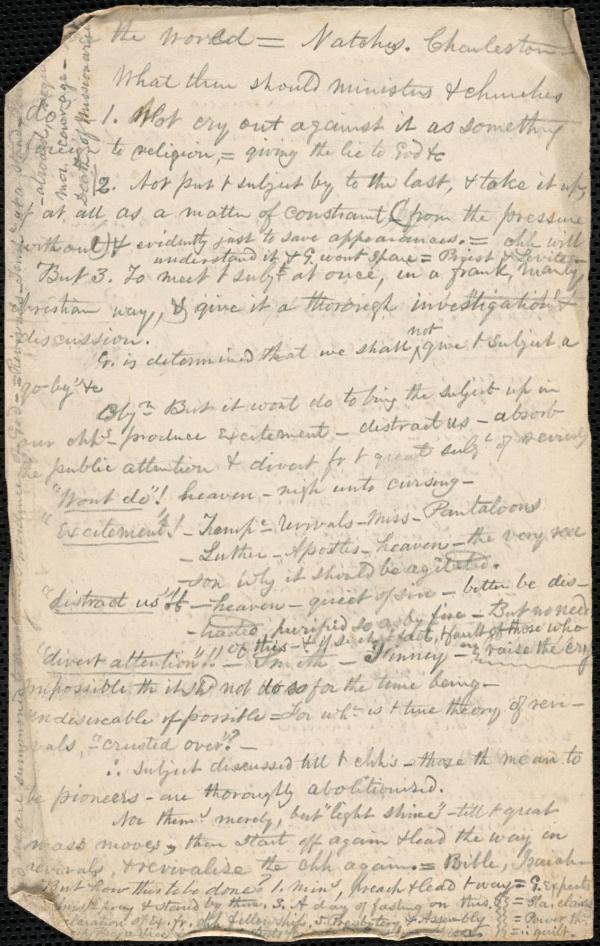 the world = Natches. Charleston =
What then should ministers & churches
do - 1. Not cry out against it as something
to religion, = giving the lie to God &c
2. Not put t subject by to the last, & take it up,
if at all as a matter of constraint (from the pressure
without) & evidently just to save appearances. = chh will
understand it & G. wont spare = Priest & Levite -
But 3. To meet t subjt at once, in a frank, manly
christian way, & give it a thorough investigation &
discussion.
G. is determined that we shall not give t subject a
go-by" &c
Objn But it wont do to bring the subject up in
our chhs - produce excitement - distract us - absorb
the public attention & divert fr t great subjt of revivals
"Wont do"! heaven - nigh unto cursing -
"Excitement"! - Tempe - revivals - Miss - Pantaloons
- Luther - Apostles - heaven - the very rea
- son why it should be agitated.
"distract us"!! - heaven - quiet of sin - better be dis-
- purified so as by fire - But no need
of this - & if such t fact, t fault of those who
"divert attention"!! - Smith - Finney - raise the cry
impossible th it shd not do so for the time being -
undesirable if possible = For wht is t true theory of revi-
vals, "crusted over"? -
∴ subject discussed till t chhs - those th mean to
be pioneers - are thoroughly abolitionized.
Nor them merely, but "light shine" - till t great
mass moves, then start off again & lead the way in
revivals, & revivalise the chh again. = Bible, Isaiah
But how this to be done? 1. Mins, preach & lead t way = G. expects
pray & stand by them, 3. A day of fasting on this,
chh fellowship, 5 Presbytery & Assembly = Power th
= guilt
Death of Missionaries